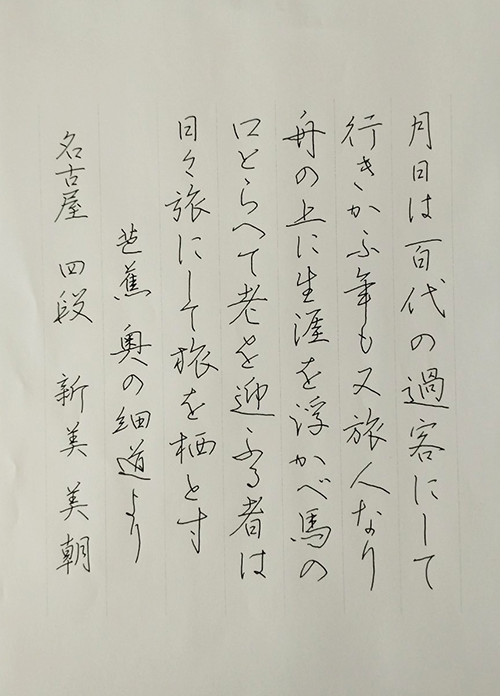 月日は百代の過客にして
行きかふ年も又旅人なり
舟の上に生涯を浮かべ馬の
口とらへて老を迎ふる者は
日々旅にして旅を栖とす
芭蕉 奥の細道より
名古屋 四段 新美 美朝